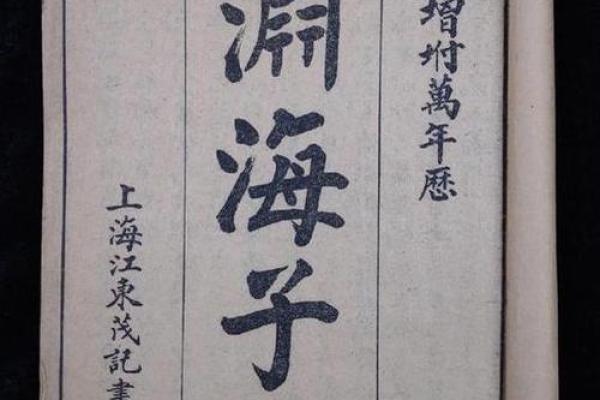 增坿萬年歷
淵海子
上海江東茂記書